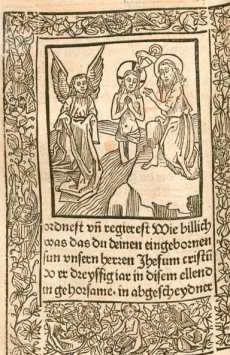 ordnest vñ regierest Wie billich
was das du deinen eingebornen
sun vnsern herren Jhesum cristũ
do er dreyssig iar in disem ellend
in gehorsame. in abgescheydner